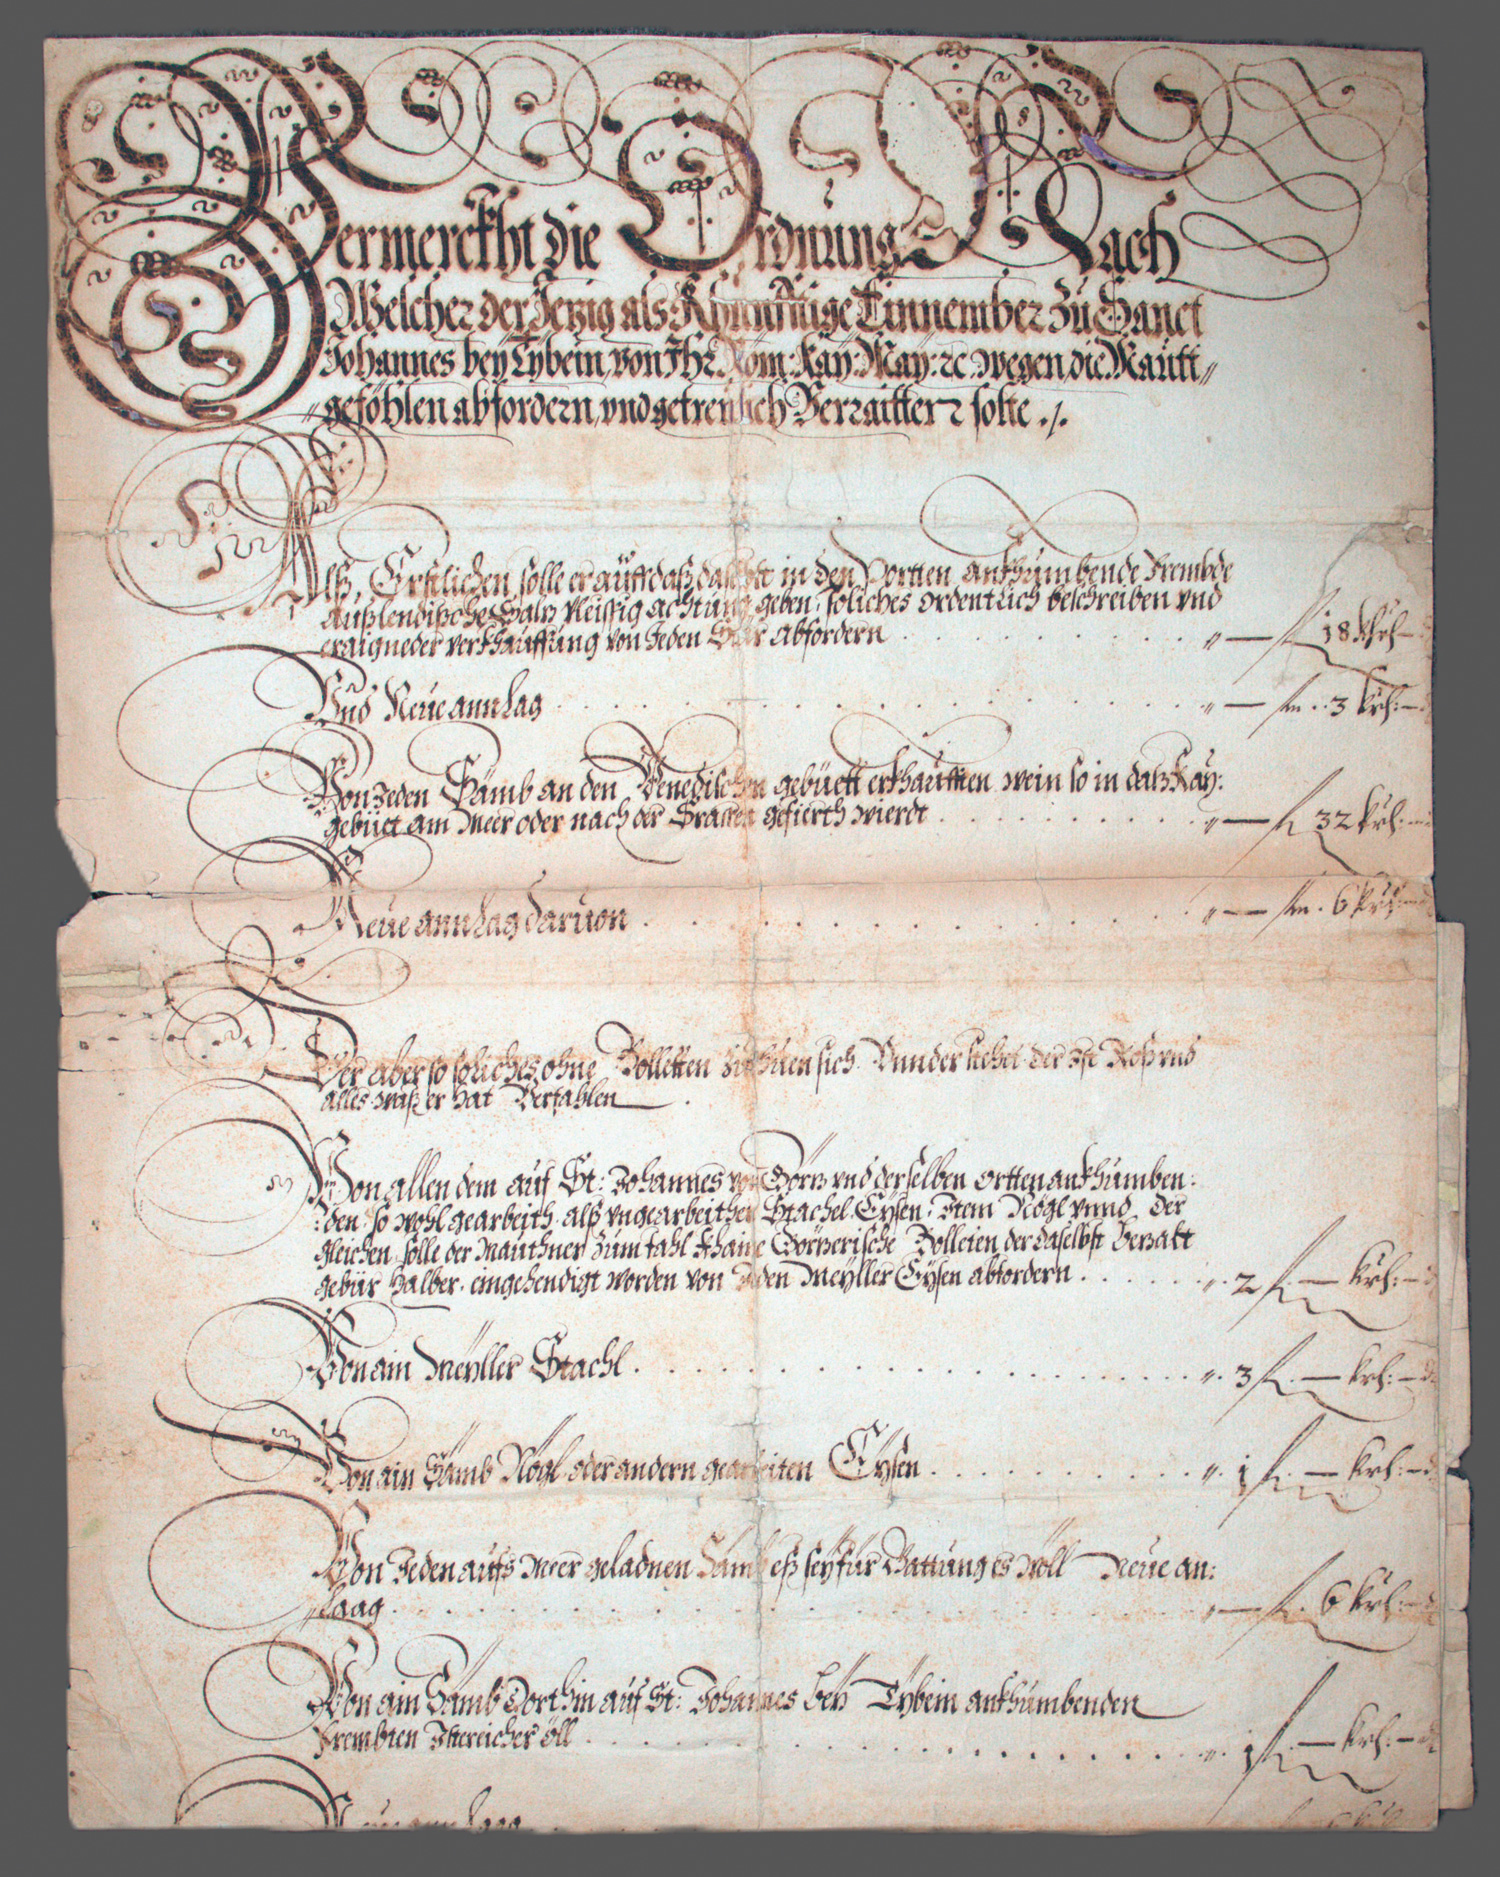 Vermerckht die Ordnung Nach
Welcher der Jezig als Khünfftige Einnember zu Sanct
Johannes bey Tybein, von Ihr Röm: Kay: May: rc wegen, die Mautt„
„geföhlen abfordern, vnd getreulich Verraitten solte ./.
Alß, Erstlichen solle er auff daß daselbst in den Portten ankhümbende Frembde
außlendische Salz Vleissig achtung geben, soliches ordentlich beschreiben vnd
eraigneder verkhauffung von Jeden Star abfordern . . . „ — fl 18 khrh —
Vnd Neue annlag . . . „ — fln . . 3 krh: —
Von Jeden Sämb an den Venedischen gebüett erkhaufften wein so in daß Kay:
gebüet am Meer oder nach der Strassen gefierth wierdt . . . „ — fl 32 krh: —
Neue annlag daruon . . . „ — fln . 6 krh: —
Der aber so soliches ohne Bolletten zu thuen sich Vnnderstehet der Ist Roß vnd
alles waß er hat Verfahlen
Von allen dem auf St: Johannes von Görz vnd derselben ortten ankhumben:
:den so wohl gearbeith alß vngearbeithen Stachel. Eysen, Item Nögl vnnd der
gleichen solle der Mauthner zum fahl Khaine Görzerische Bolleten der daselbst bezalt
gebür halber. eingehendigt worden von Jeden Meyller Eysen abfordern . . . „ 2 fl. — krh: —
Von ain Meyller Stachl . . . „. 3 fl. — krh: —
Von ain Sämb Nögl oder andern gearbeiten Eysen . . . „. 1 fl. — krh: —
Von Jeden aufs Meer geladnen Sämb eß sey für Gattung es wöll Neue an:
„laag . . . „ — fl . 6 krh: —
Von ain Sämb dorthin auf St: Johannes bey Tybein ankhumbenden
frembten Istereicher öll . . . „. 1 fl. — krh: —
Neue annlaag